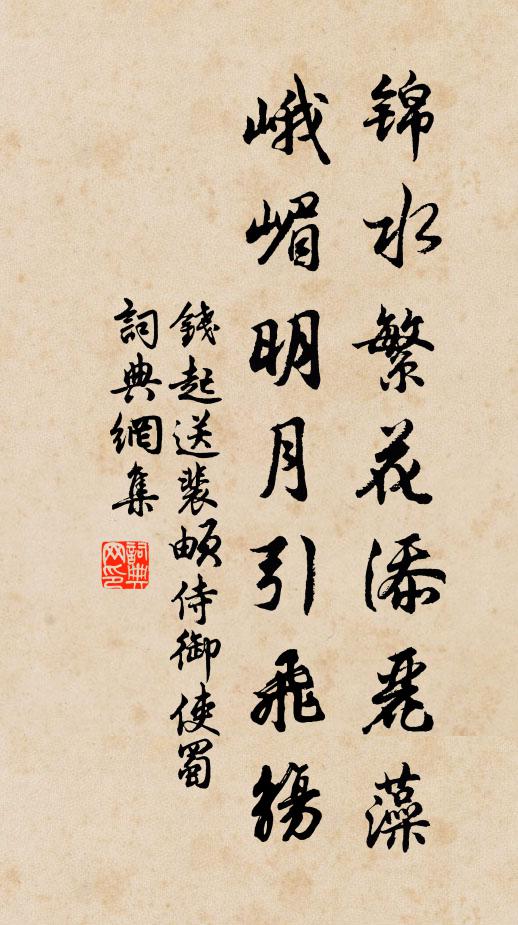 锦水繁花添丽藻
峨嵋明月引飛觴
錢起送裴頔侍御使蜀
詞典網集
詞典网印